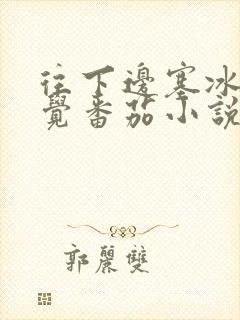 往下邊塞冰
覺番茄小說
郭麗雙